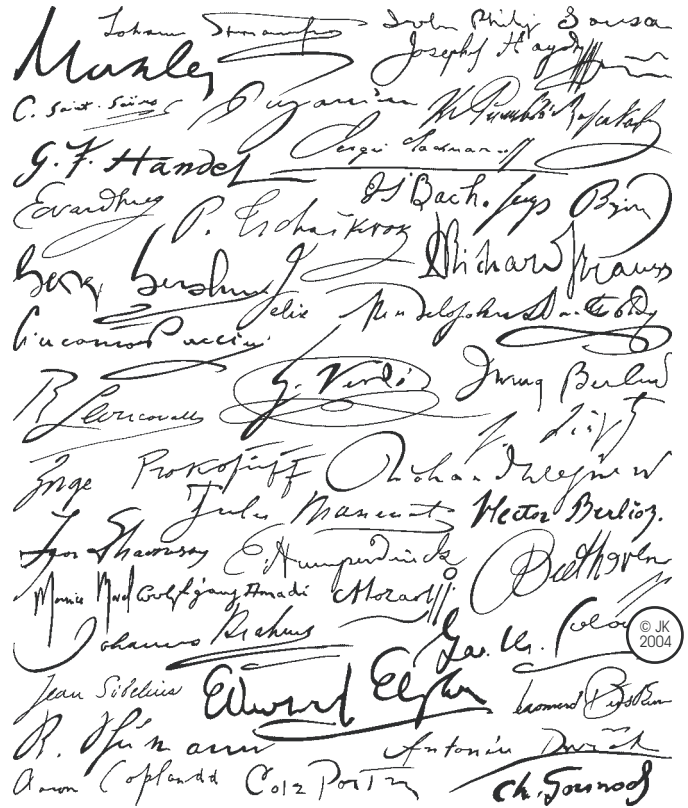 Johann Strauss
John Philip Sousa
Mahler
Joseph Haydn
C. Saint-Saëns
Paganini
N. Rimsky-Korsakoff
G. F. Handel
Sergei Rachmaninoff
Edvard Grieg
P. Tschaïkovsky
J S Bach.
Georges Bizet
George Gershwin
Richard Strauss
Felix Mendelssohn Bartholdy
Giacomo Puccini
G. Verdi
Irving Berlin
R Leoncavallo
F. Liszt
Serge Prokofieff
Richard Wagner
Jules Massenet
Hector Berlioz.
Igor Stravinsky
E. Humperdinck
Beethoven
Maurice Ravel
Wolfgang Amadé Mozart
Johannes Brahms
© JK
2004
Jean Sibelius
Edward Elgar
Leonard Bernstein
R. Schumann
Antonín Dvořák
Aaron Copland
Cole Porter
Ch. Gounod